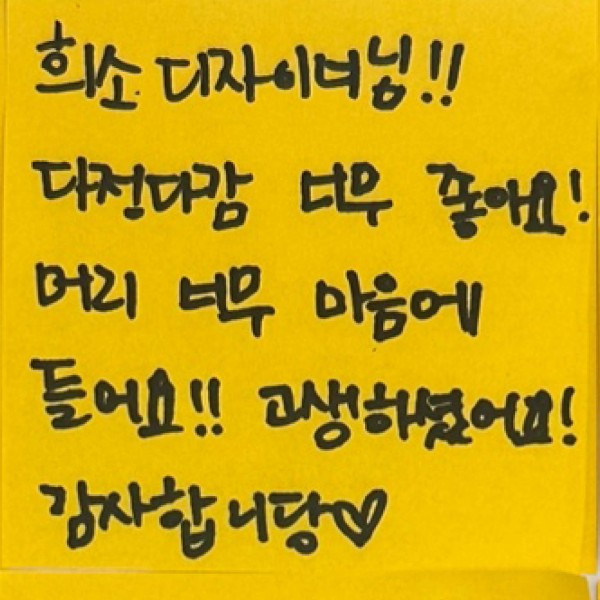 희소 디자이너님!!
다정다감 너무 좋아요!
머리 너무 마음에
들어요!! 고생하셨어요!
감사합니당♡